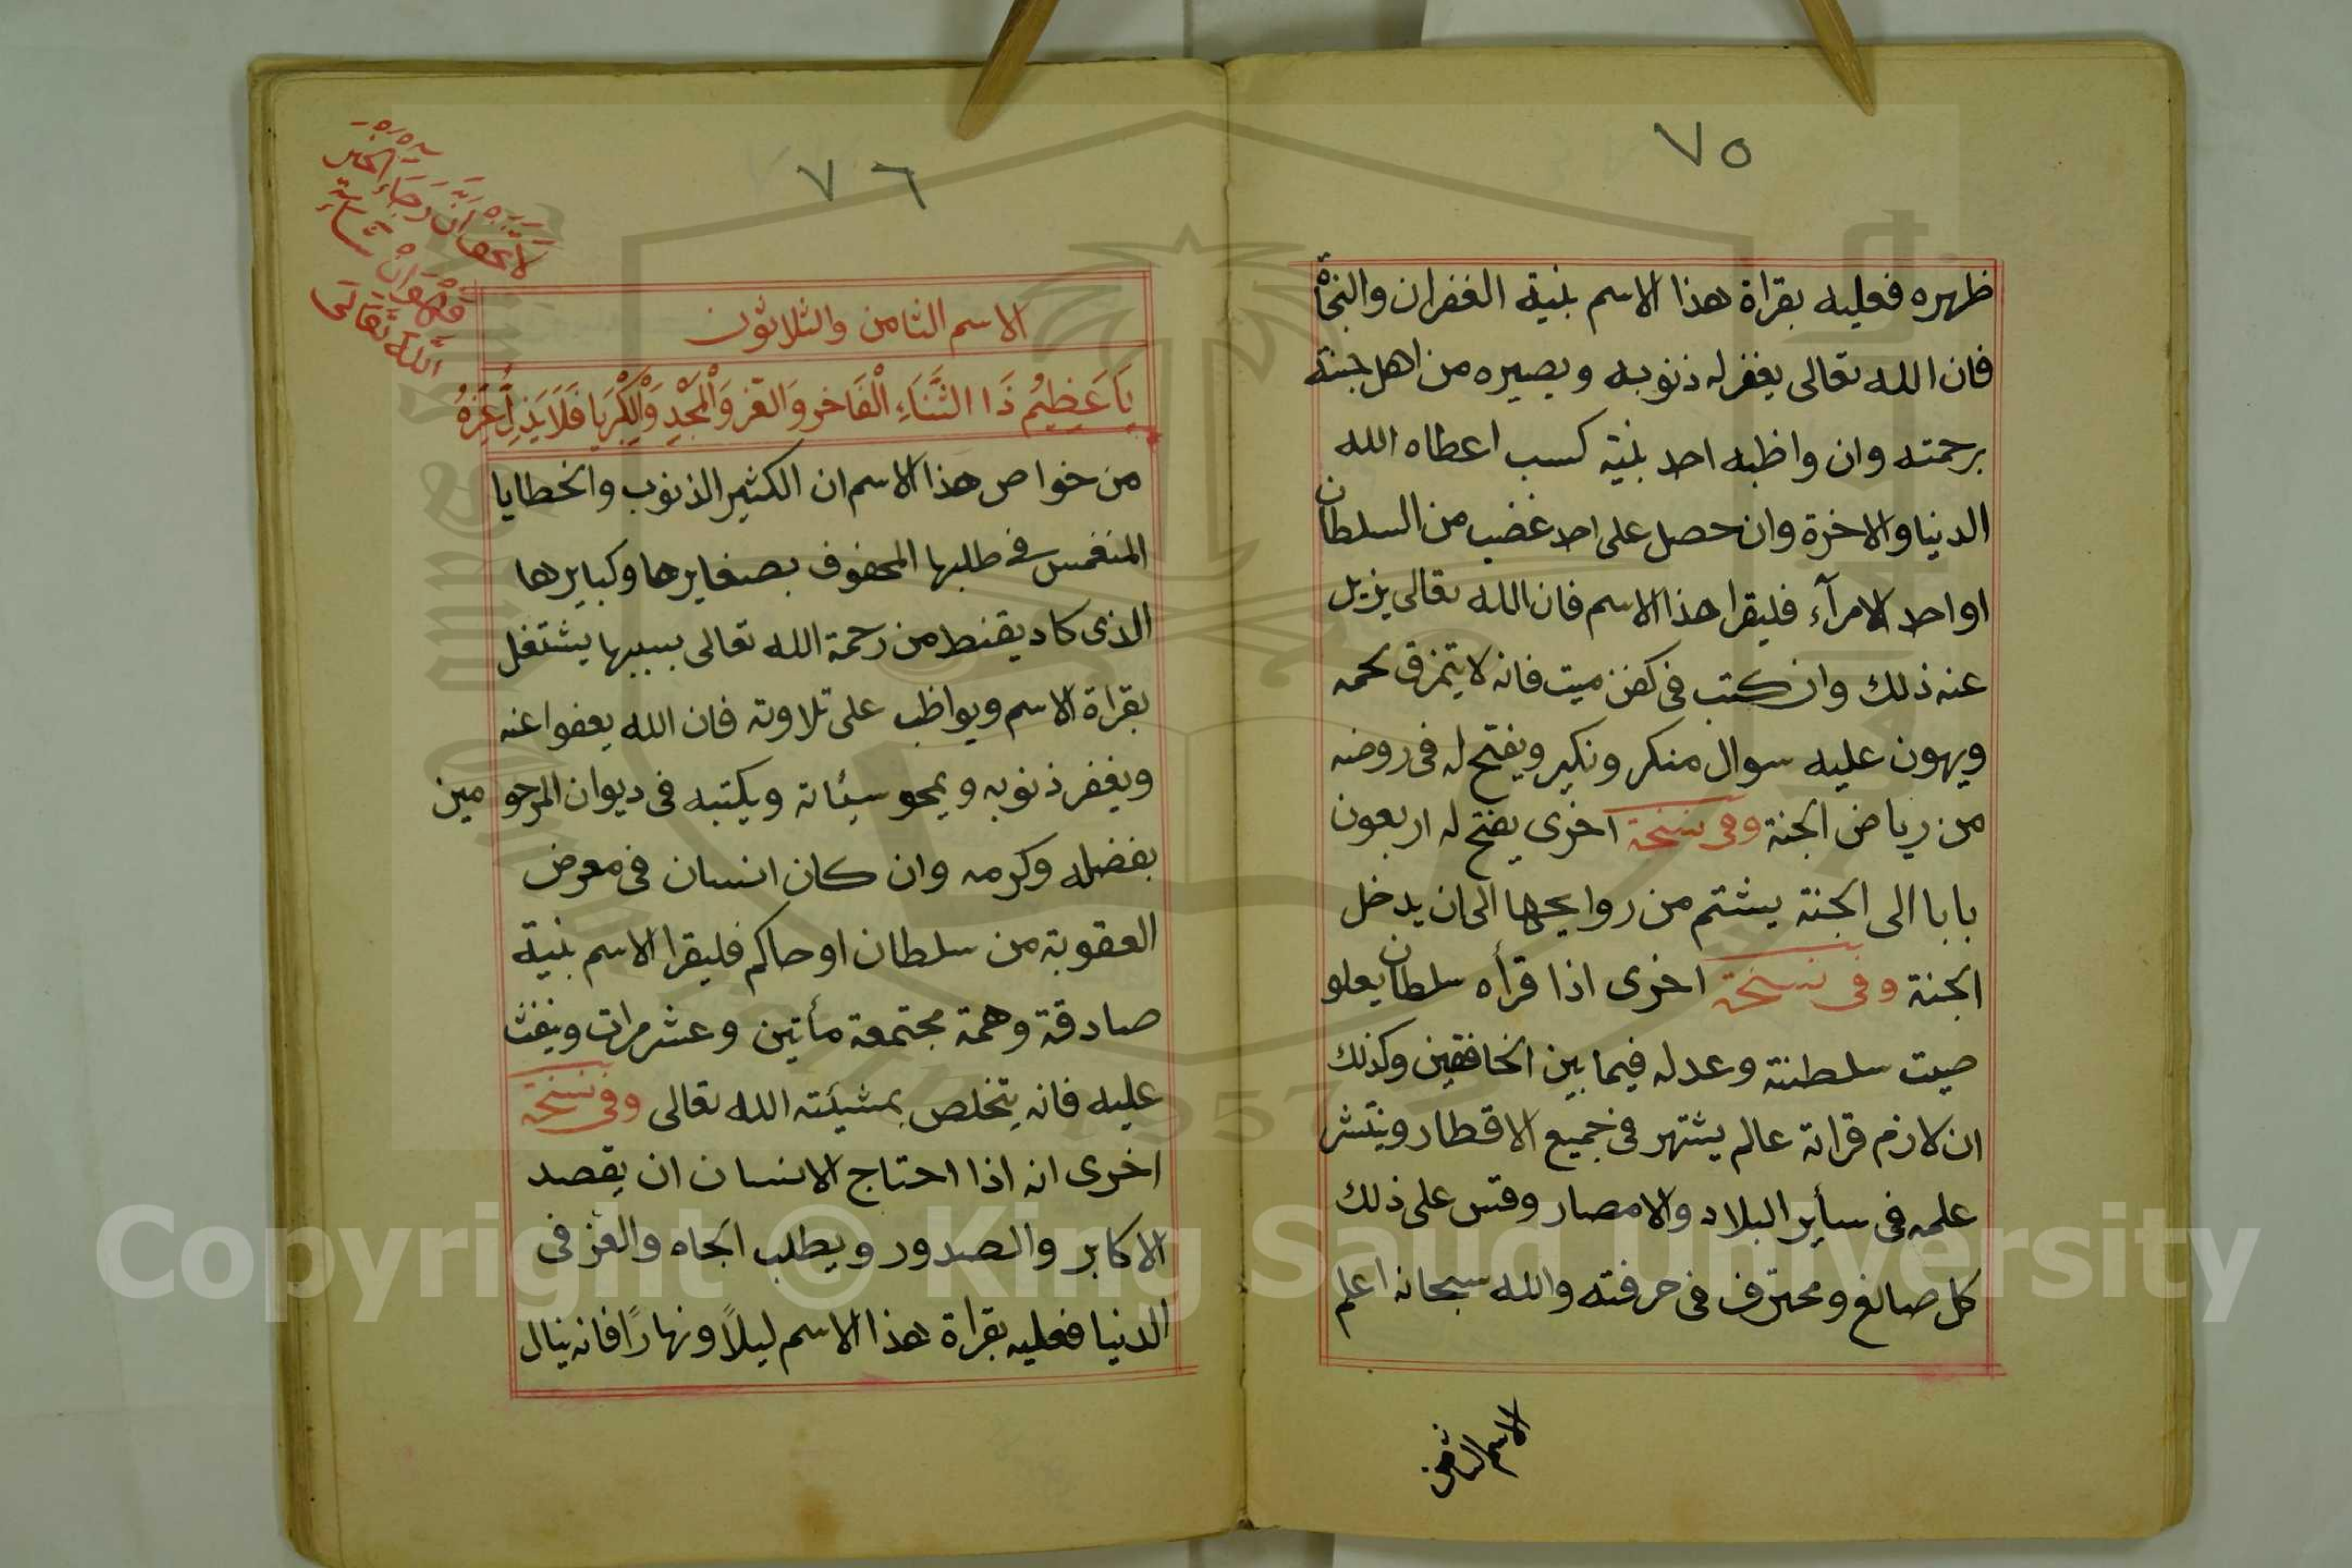 ٧٥
ظهره فعليه بقراة هذا الاسم بنية الغفران والنجاة
فان الله تعالى يغفر له ذنوبه ويصيره من اهل جنته
برحمته وان واظبه احد بنية كسب اعطاه الله
الدنيا والاخرة وان حصل على احد غضب من السلطان
او احد الامرآء فليقرا هذا الاسم فان الله تعالى يزيل
عنه ذلك وان كتب فى كفن ميت فانه لا يتمزق لحمه
ويهون عليه سوال منكر ونكير ويفتح له فى روضه
من رياض الجنة وفى نسخة اخرى يفتح له اربعون
بابا الى الجنة يشتم من روايحها الى ان يدخل
الجنة وفى نسخة اخرى اذا قرأه سلطان يعلو
صيت سلطنته وعدله فيما بين الخافقين وكذلك
ان لازم قراته عالم يشتهر فى جميع الاقطار وينتشر
علمه فى سأير البلاد والامصار وقس على ذلك
كل صانع ومحترف فى حرفته والله سبحانه اعلم
الاسم الثامن
٧٦
الاسم الثامن والثلاثون
يَا عَظِيمُ ذَا الثَّنَاءِ الْفَاخر وَالعّز وَالْمَجْدِ وَالْكِبْرِيَا فَلَا يَذِلُّ عِزُّهُ
من خواص هذا الاسم ان الكثير الذنوب والخطايا
المنغمس فى طلبها المحفوف بصغايرها وكبايرها
الذى كاد يقنط من رحمة الله تعالى بسببها يشتغل
بقراة الاسم ويواظب على تلاوته فان الله يعفوا عنه
ويغفر ذنوبه ويمحو سيئاته ويكتبه فى ديوان المرحومين
بفضله وكرمه وان كان انسان فى معرض
العقوبة من سلطان او حاكم فليقرا الاسم بنية
صادقة وهمة مجتمعة مأتين وعشر مرات وينفث
عليه فانه يتخلص بمشيئته الله تعالى وفى نسخة
اخرى انه اذا احتاج الانسان ان يقصد
الاكابر والصدور ويطلب الجاه والعز فى
الدنيا فعليه بقراة هذا الاسم ليلاً ونهارًا فانه ينال